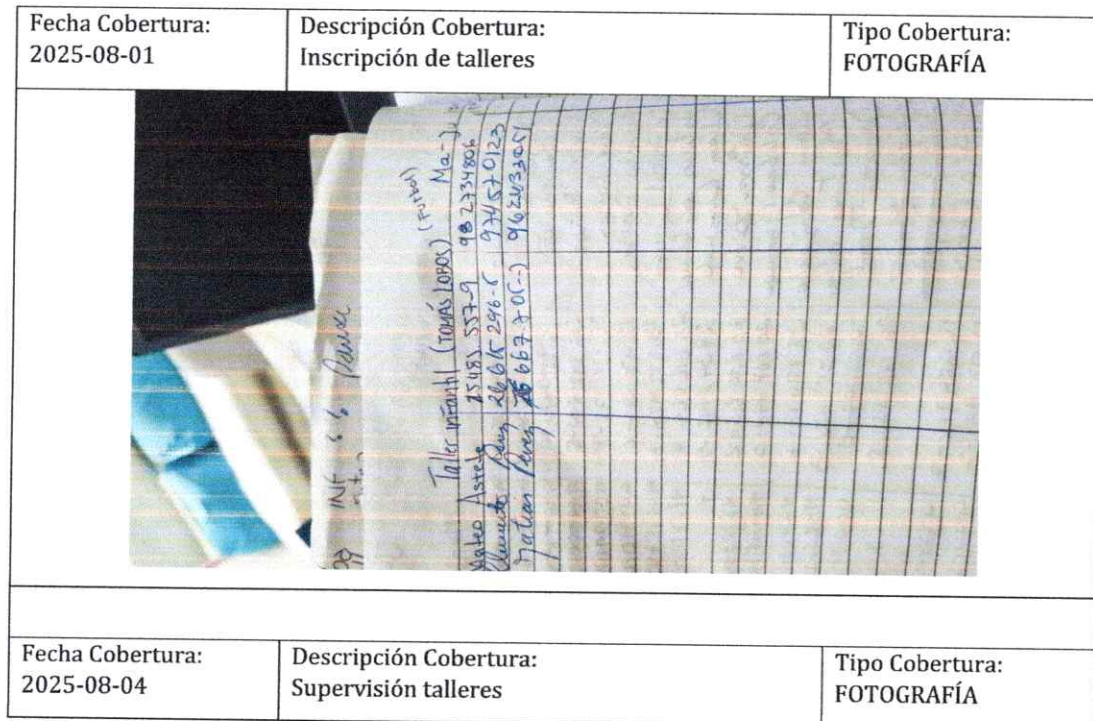 Fecha Cobertura:
2025-08-01
Descripción Cobertura:
Inscripción de talleres
Tipo Cobertura:
FOTOGRAFÍA
INF
Taller infantil (TOMÁS LOBOS) (Futbol)
Mateo Astete 25485 557-9 982734806
Perez 26 615 296-5 974570123
Perez 667 705-
Fecha Cobertura:
2025-08-04
Descripción Cobertura:
Supervisión talleres
Tipo Cobertura:
FOTOGRAFÍA